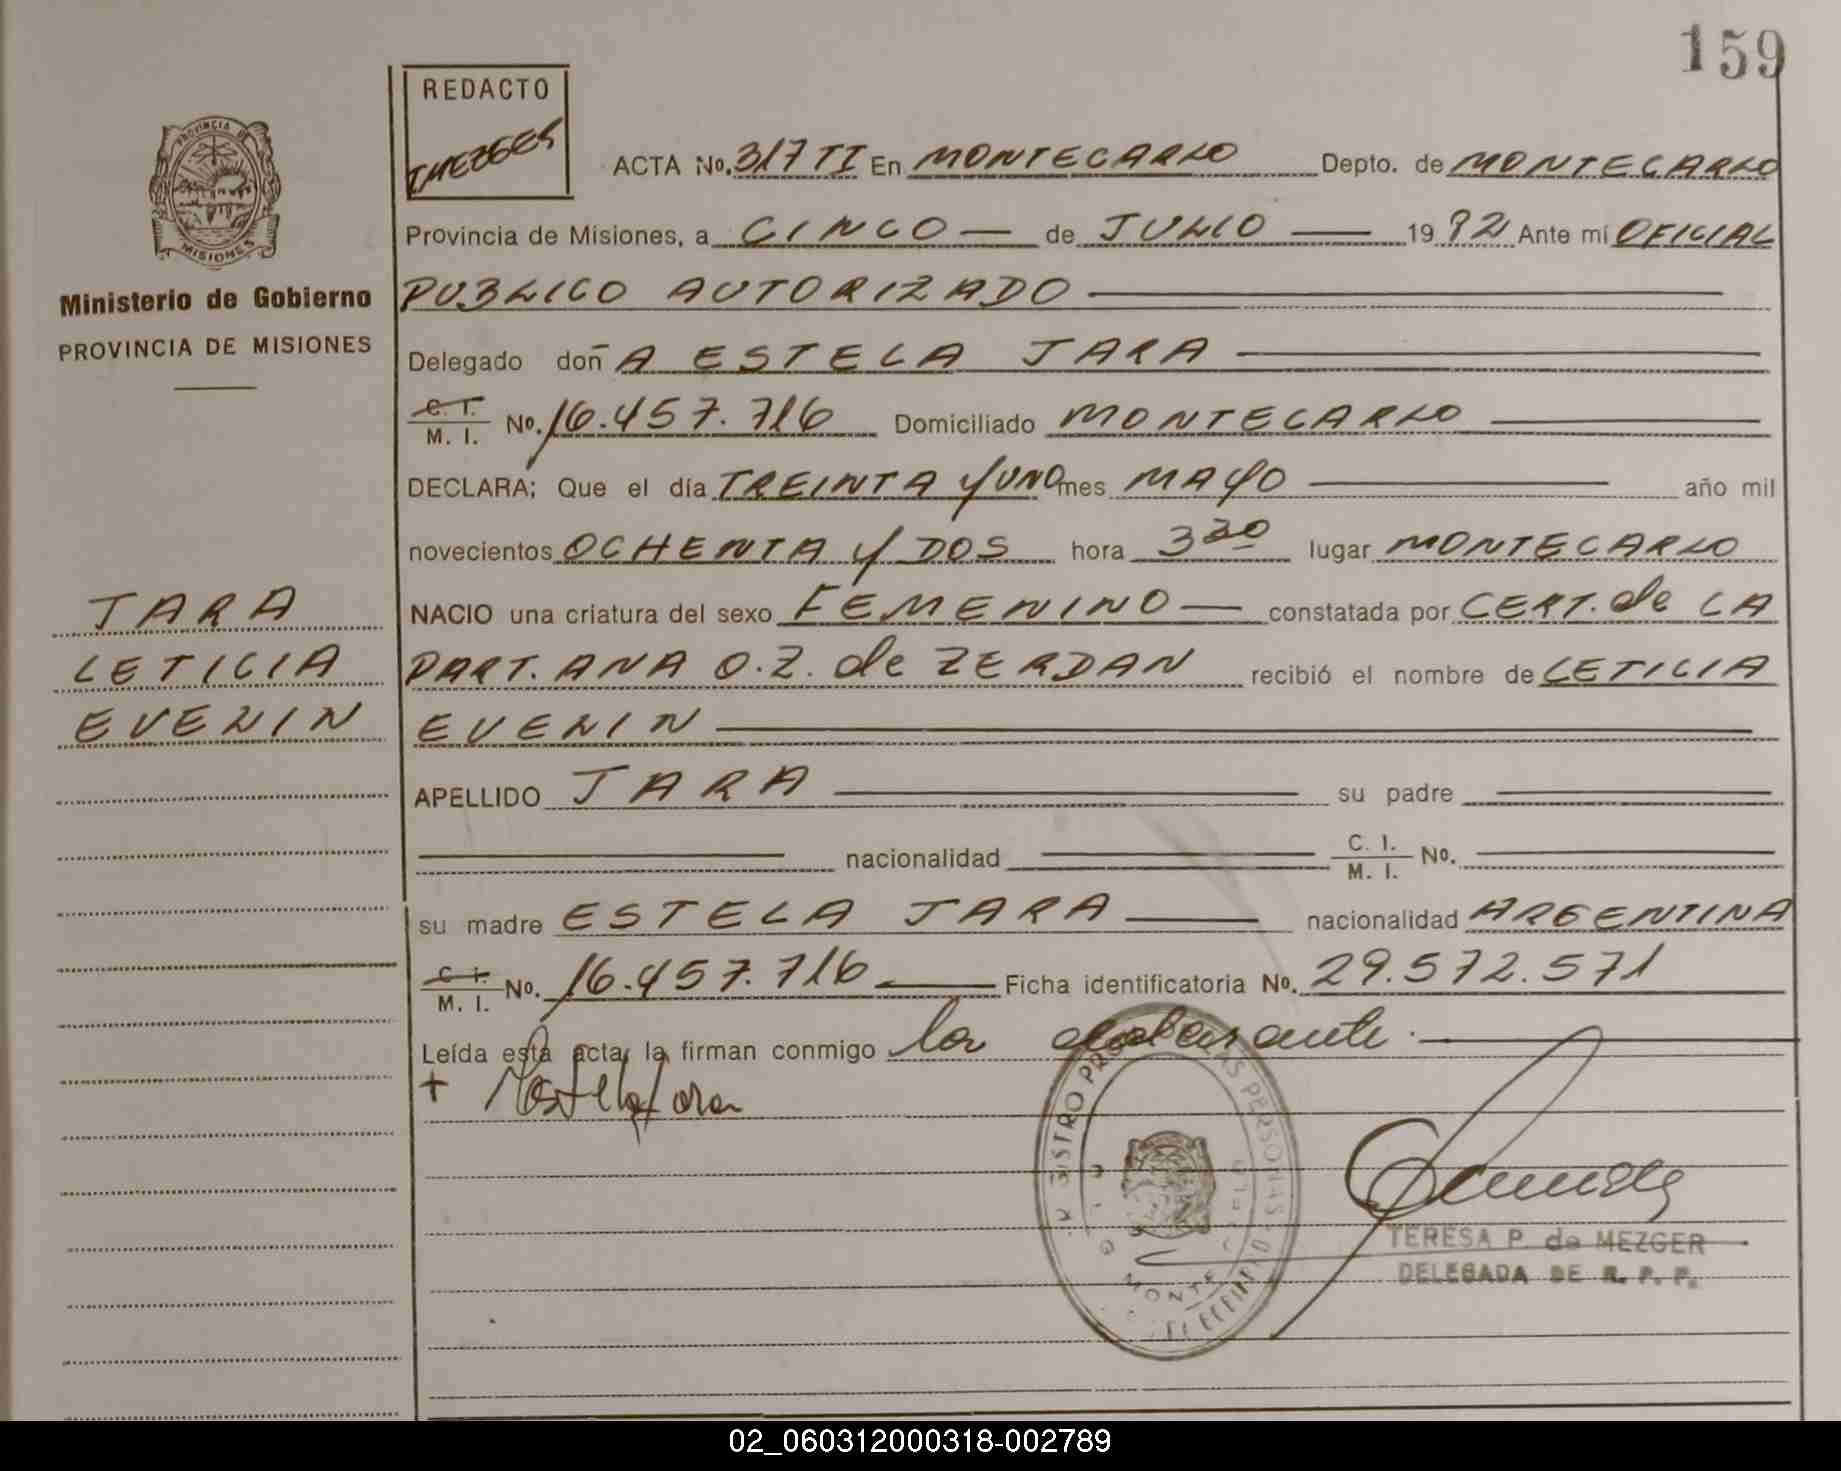 159
REDACTO
TMEZGES
ACTA No. 317 TI En MONTECARLO Depto. de MONTECARLO
Provincia de Misiones, a CINCO — de JULIO — 1982 Ante mí OFICIAL
PUBLICO AUTORIZADO —
PROVINCIA DE MISIONES
Ministerio de Gobierno
PROVINCIA DE MISIONES
Delegado doñA ESTELA JARA —
C. I. / M. I. No. 16.457.716 Domiciliado MONTECARLO —
DECLARA; Que el día TREINTA y UNO mes MAYO — año mil
novecientos OCHENTA y DOS hora 3 30 lugar MONTECARLO
NACIO una criatura del sexo FEMENINO — constatada por CERT. de LA
PART. ANA O. Z. de ZERDAN recibió el nombre de LETICIA
EVELIN —
JARA
LETICIA
EVELIN
APELLIDO JARA — su padre —
— nacionalidad — C. I. / M. I. No. —
su madre ESTELA JARA — nacionalidad ARGENTINA
C. I. / M. I. No. 16.457.716 — Ficha identificatoria No. 29.572.571
Leída esta acta, la firman conmigo la declarante. —
+ Estela Jara
TERESA P. de MEZGER
DELEGADA DE R. P. P.
02_060312000318-002789